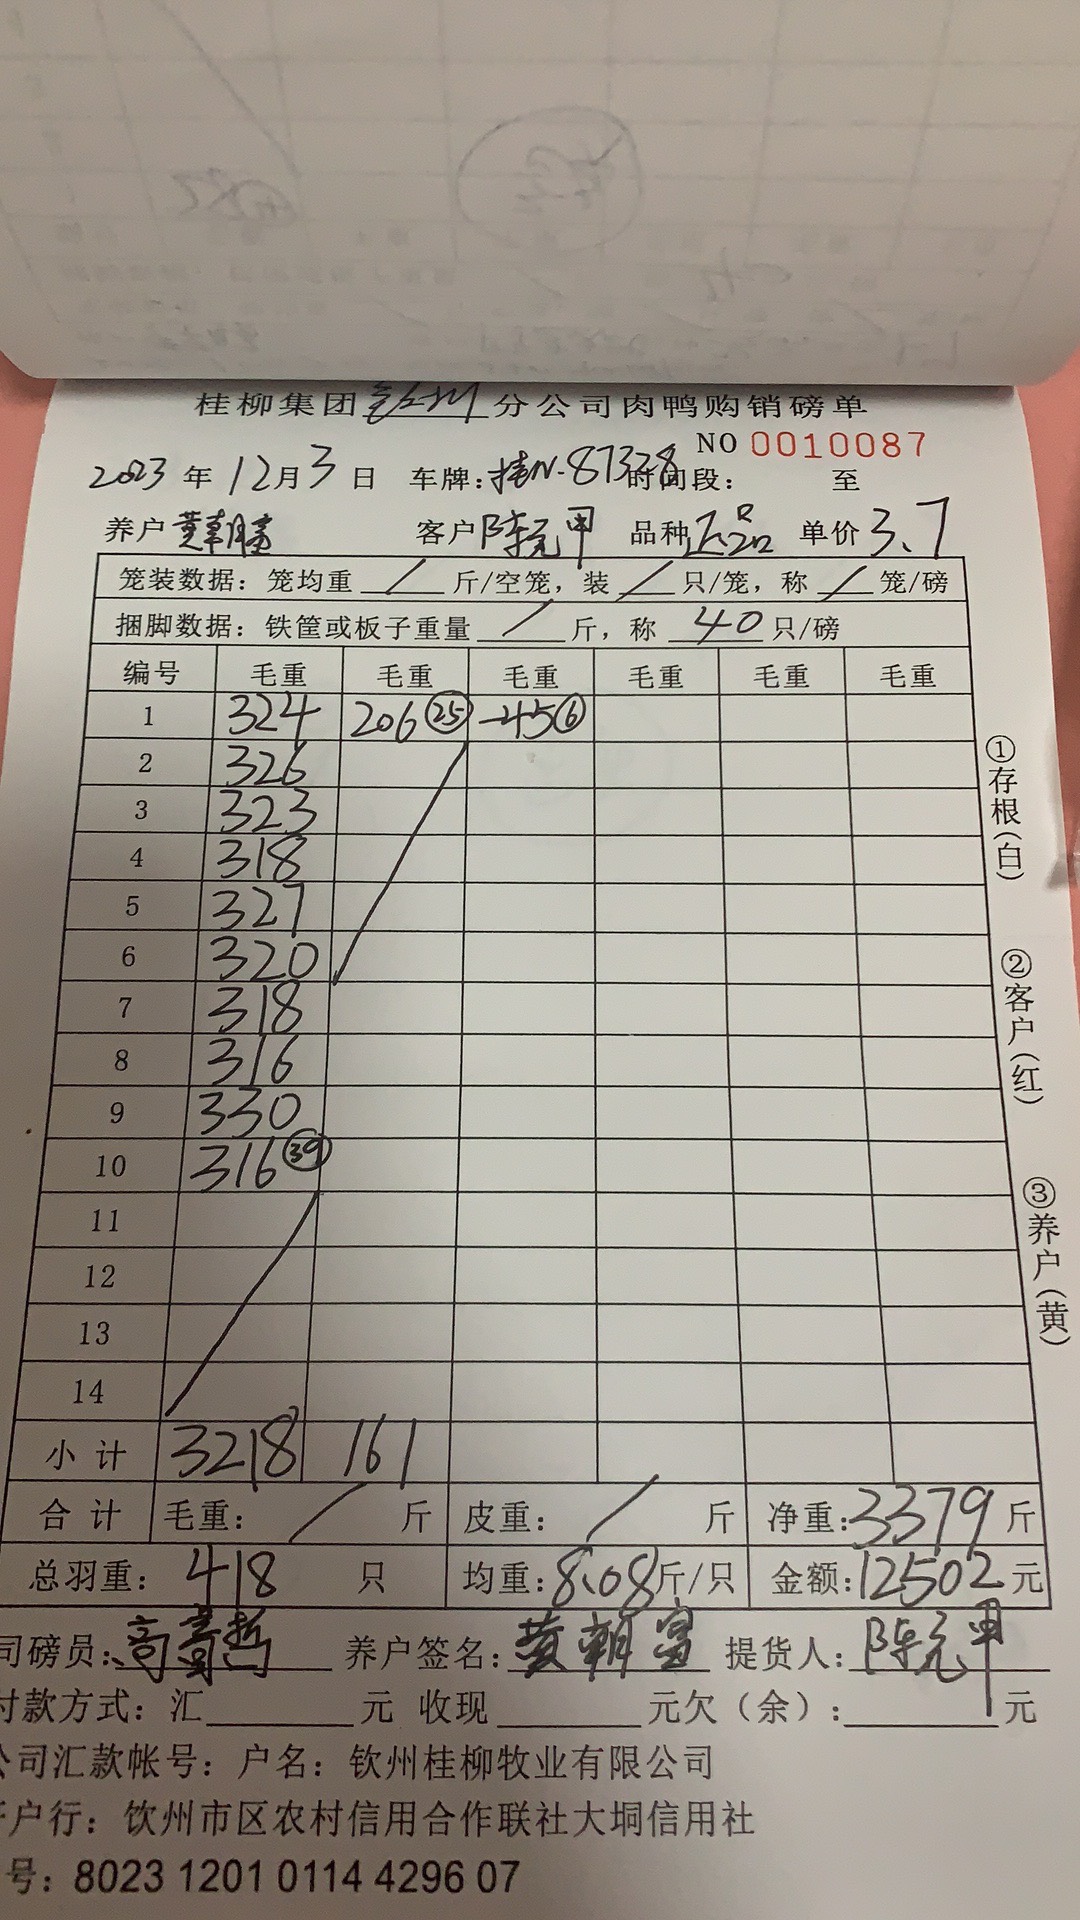 桂柳集团 分公司肉鸭购销磅单
NO 0010087
2023 年 12 月 3 日 车牌:桂N-87328 时间段: 至
养户 黄朝富 客户 陈元甲 品种 正品 单价 3.7
笼装数据: 笼均重 / 斤/空笼, 装 / 只/笼, 称 / 笼/磅
捆脚数据: 铁筐或板子重量 / 斤, 称 40 只/磅
编号 毛重 毛重 毛重 毛重 毛重 毛重
1 324 206 (25) -45 (6)
2 326
3 323
4 318
5 327
6 320
7 318
8 316
9 330
10 316 (39)
11
12
13
14
小 计 3218 161
合 计 毛重: / 斤 皮重: / 斤 净重:3379 斤
总羽重: 418 只 均重:8.08 斤/只 金额:12502 元
司磅员: 养户签名: 黄朝富 提货人: 陈元甲
付款方式: 汇 元 收现 元欠(余): 元
公司汇款帐号: 户名: 钦州桂柳牧业有限公司
开户行: 钦州市区农村信用合作联社大垌信用社
号: 8023 1201 0114 4296 07
①存根(白)
②客户(红)
③养户(黄)